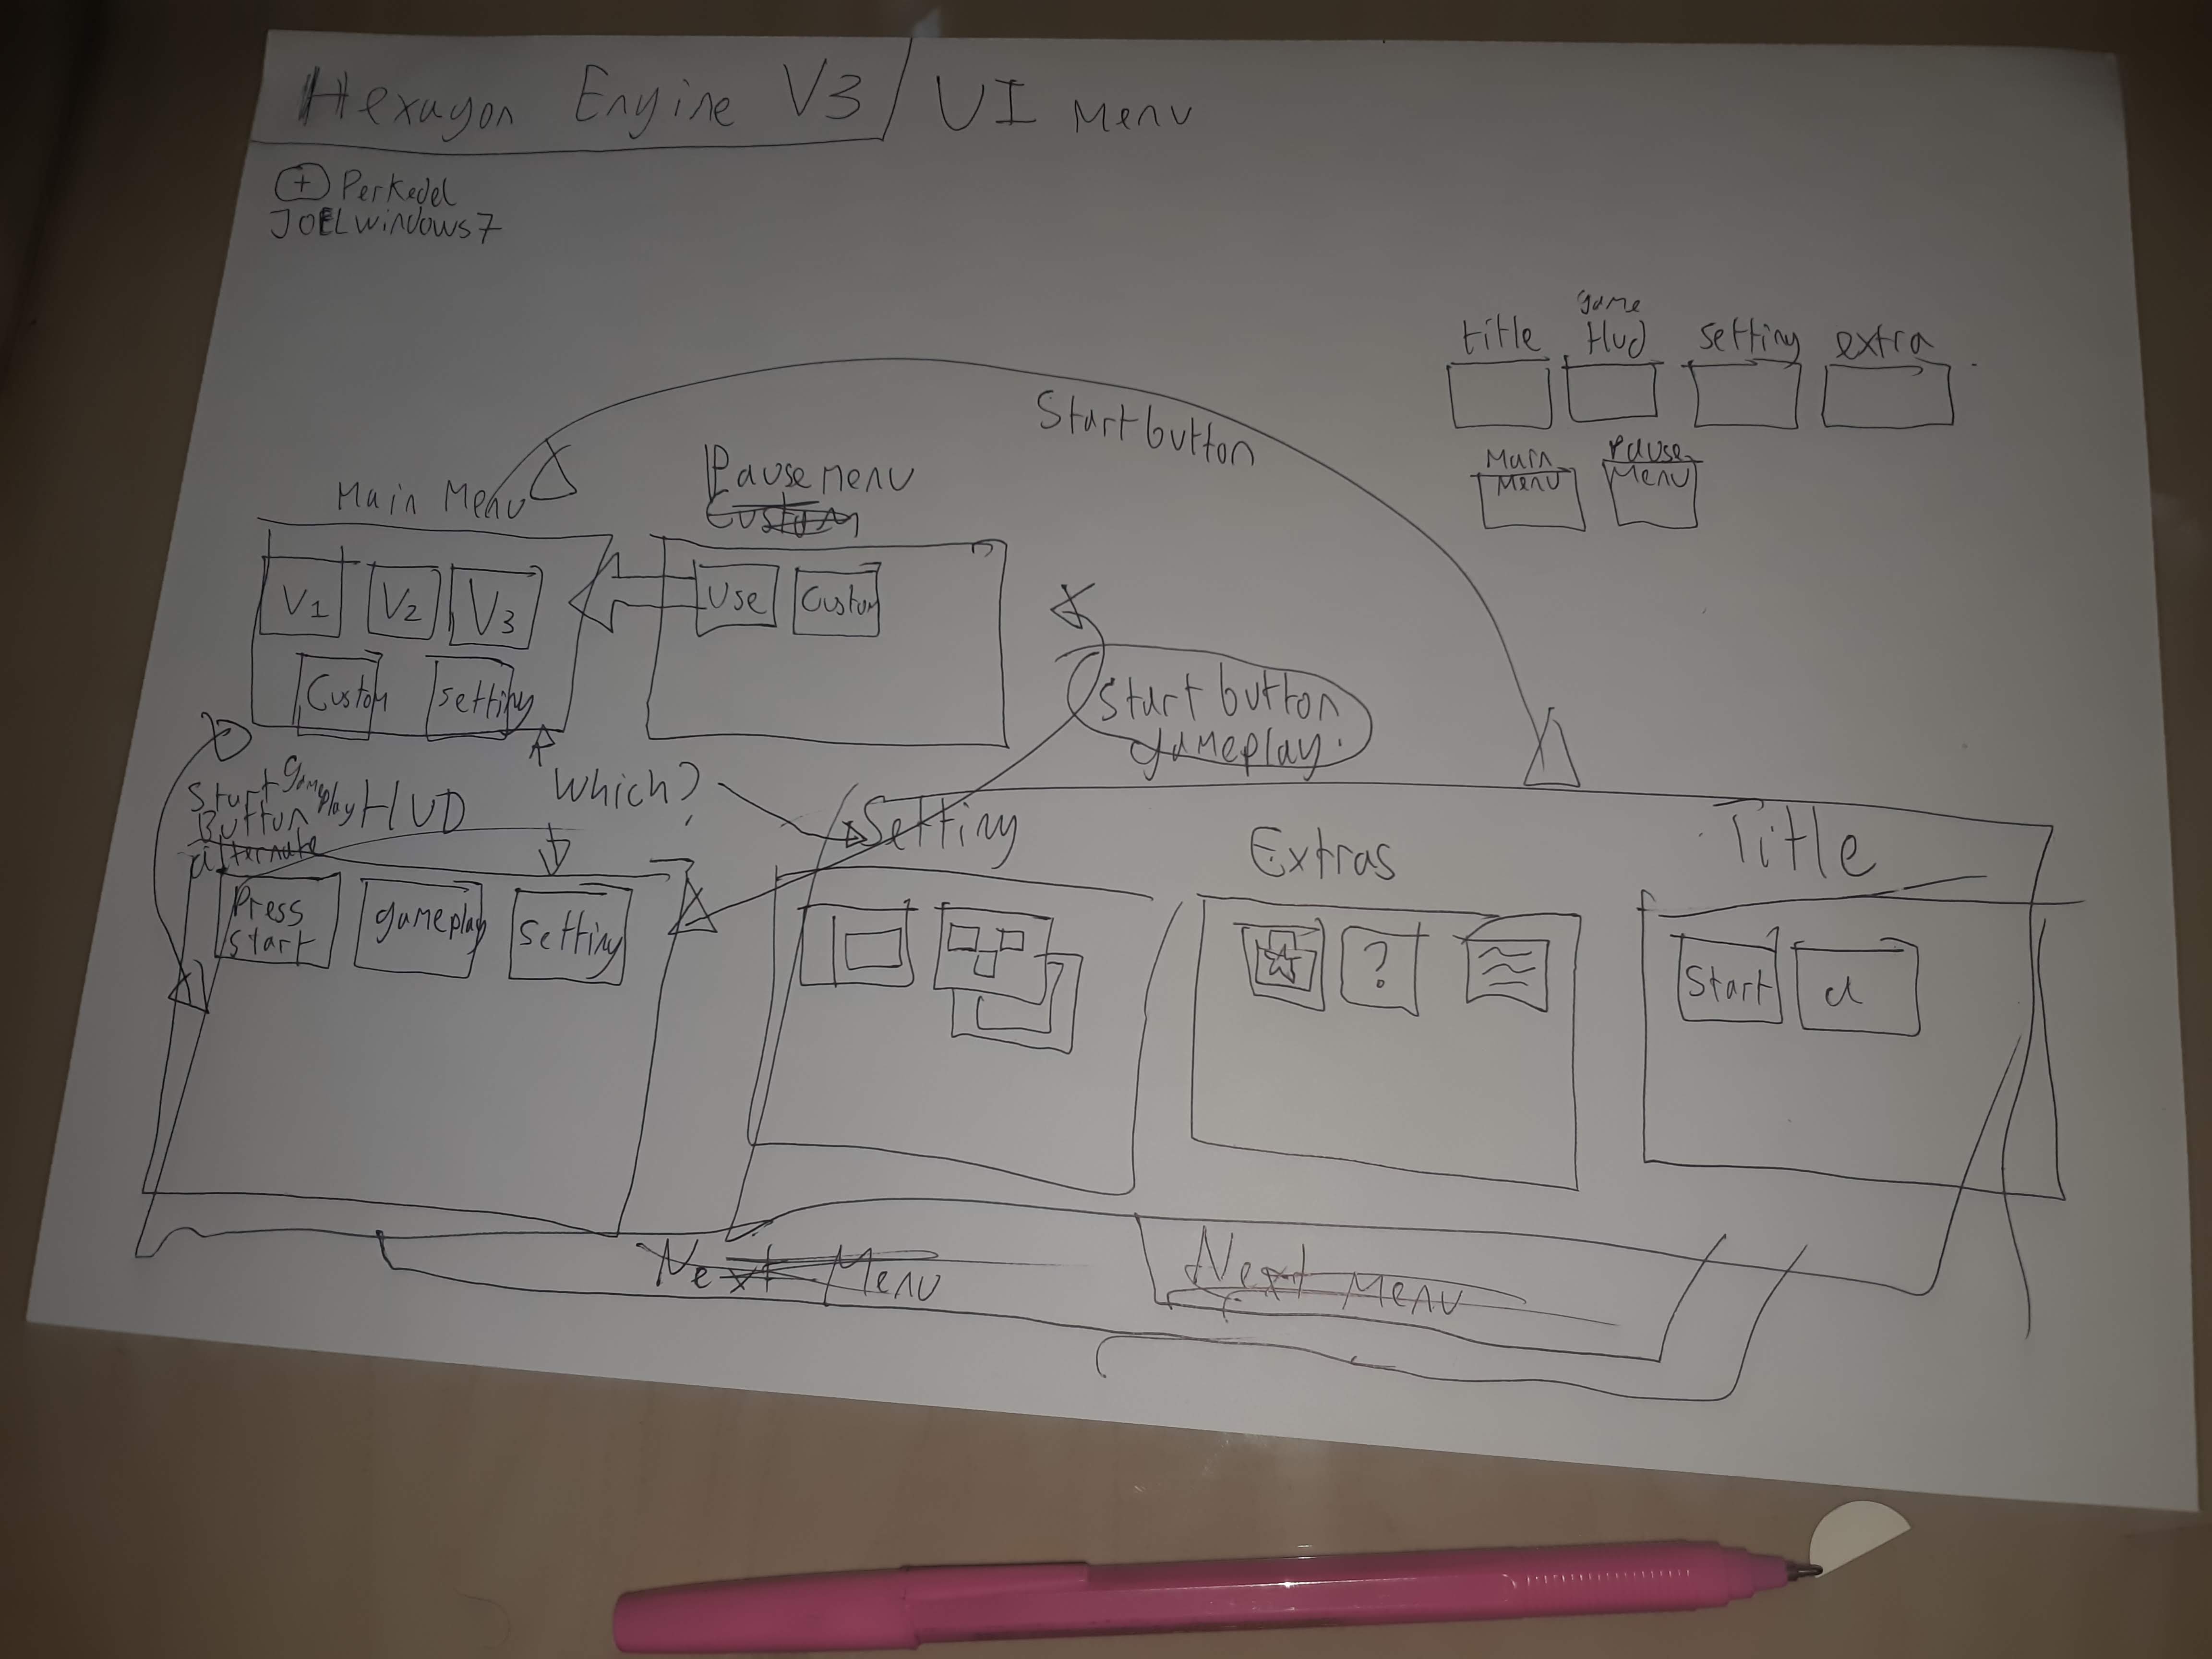 Hexagon Engine V3 / UI Menu
+ Perkedel
JOELwindows7
title
game
Hud
setting
extra
Main
Menu
Pause
Menu
Start button
Main Menu
Pause menu
Custom
V1
V2
V3
Custom
Setting
Use
Custom
Start button
gameplay.
Which?
Start
Button
alternate
gameplay HUD
Press
Start
gameplay
Setting
Setting
Extras
?
Title
Start
d
Next Menu
Next Menu